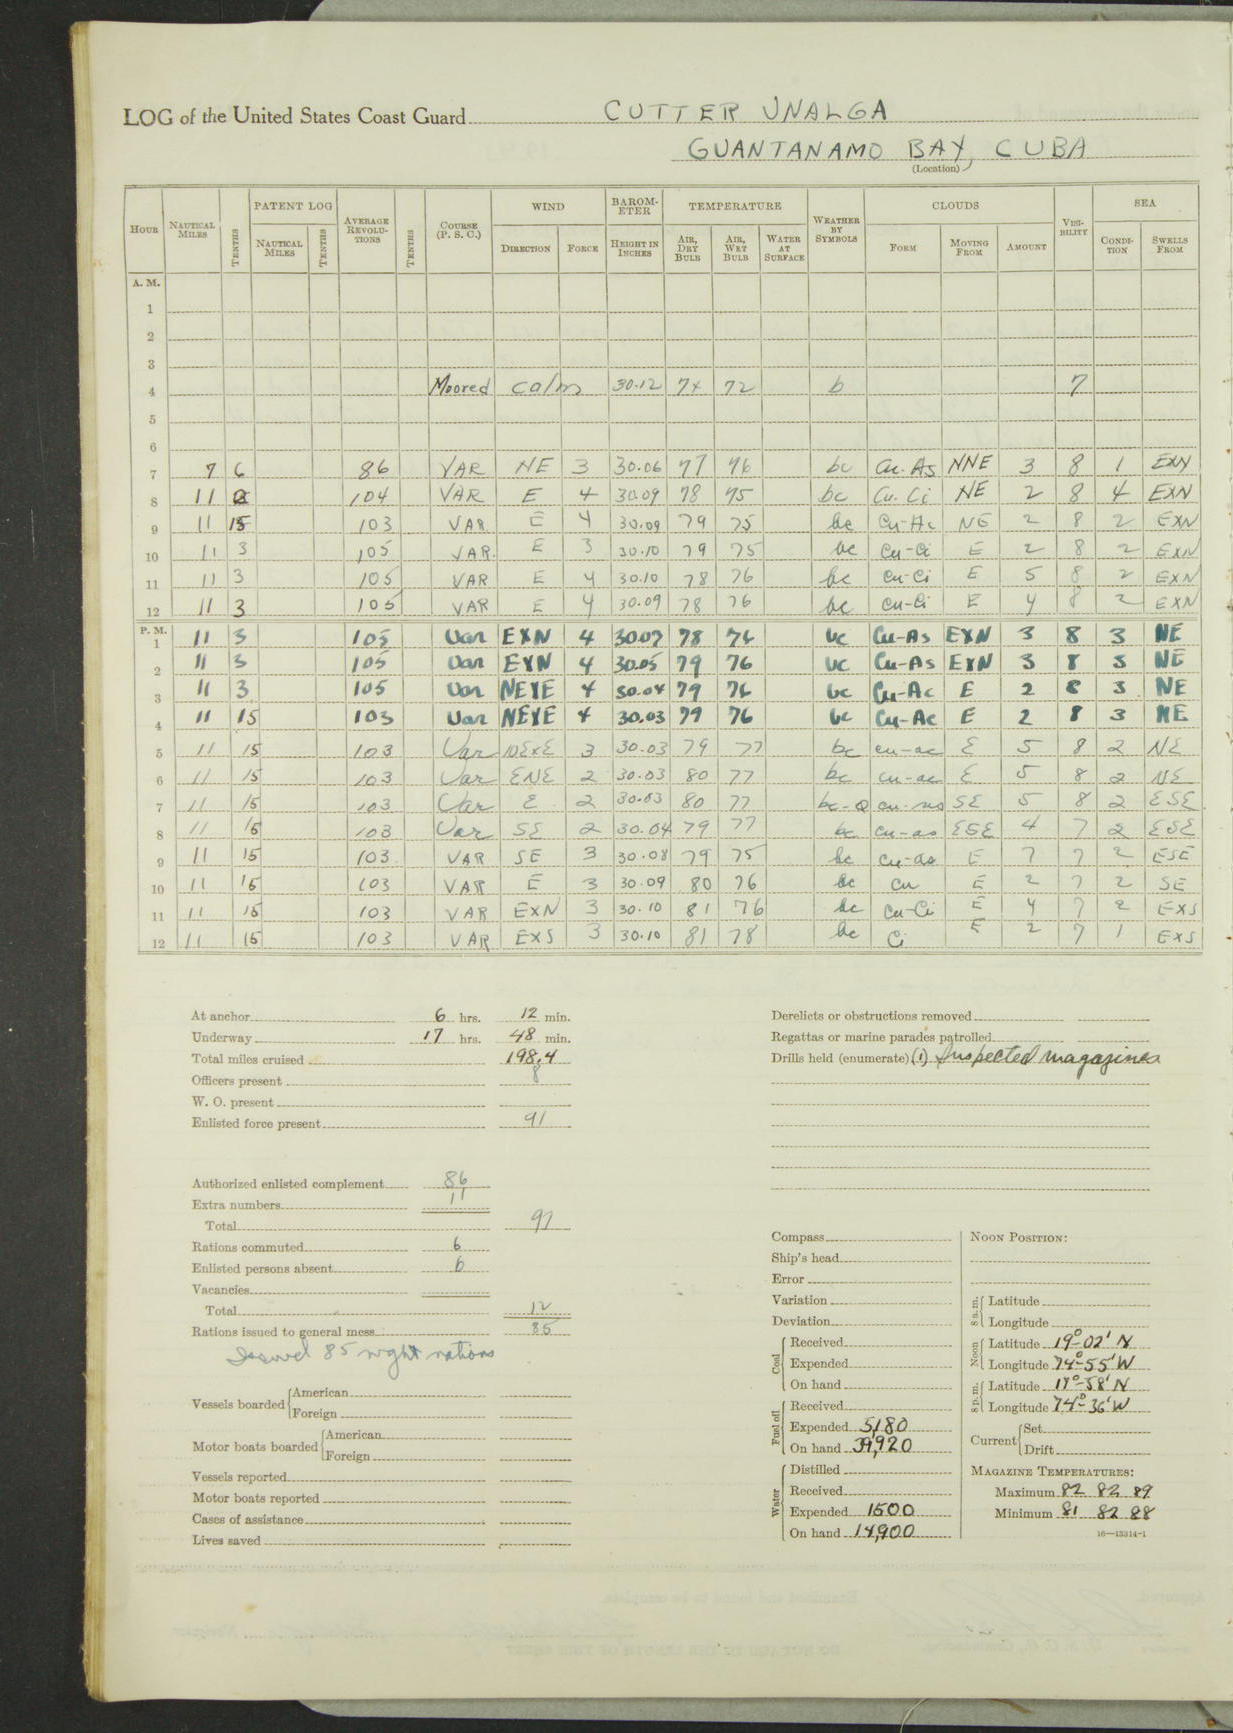 LOG of the United States Coast Guard CUTTER UNALGA
GUANTANAMO BAY, CUBA
(Location)
HOUR NAUTICAL MILES TENTHS PATENT LOG NAUTICAL MILES TENTHS AVERAGE REVOLUTIONS TENTHS COURSE (P. S. C.) WIND DIRECTION FORCE BAROMETER HEIGHT IN INCHES TEMPERATURE AIR, DRY BULB AIR, WET BULB WATER AT SURFACE WEATHER BY SYMBOLS CLOUDS FORM MOVING FROM AMOUNT VISIBILITY SEA CONDITION SWELLS FROM
A. M.
1
2
3
4 Moored calm 30.12 74 72 b 7
5
6
7 7 6 86 VAR NE 3 30.06 77 76 bc Cu-As NNE 3 8 1 EXN
8 11 104 VAR E 4 30.09 78 75 bc Cu-Ci NE 2 8 4 EXN
9 11 15 103 VAR E 4 30.09 79 75 bc Cu-Ac NE 2 8 2 EXN
10 11 3 105 VAR. E 3 30.10 79 75 bc Cu-Ci E 2 8 2 EXN
11 11 3 105 VAR E 4 30.10 78 76 bc Cu-Ci E 5 8 2 EXN
12 11 3 105 VAR E 4 30.09 78 76 bc Cu-Ci E 4 8 2 EXN
P. M.
1 11 3 105 Var EXN 4 30.07 78 76 bc Cu-As EXN 3 8 3 NE
2 11 3 105 Var EXN 4 30.05 79 76 bc Cu-As EXN 3 8 3 NE
3 11 3 105 Var NEXE 4 30.04 79 76 bc Cu-Ac E 2 8 3 NE
4 11 15 103 Var NEXE 4 30.03 79 76 bc Cu-Ac E 2 8 3 NE
5 11 15 103 Var NEXE 3 30.03 79 77 bc cu-ac E 5 8 2 NE
6 11 15 103 Var ENE 2 30.03 80 77 bc cu-ac E 5 8 2 NE
7 11 15 103 Var E 2 30.03 80 77 bc-q SE 5 8 2 ESE
8 11 15 103 Var SE 2 30.04 79 77 bc cu-as ESE 4 7 2 ESE
9 11 15 103 VAR SE 3 30.08 79 75 bc cu-as E 7 7 2 ESE
10 11 15 103 VAR E 3 30.09 80 76 bc cu E 2 7 2 SE
11 11 15 103 VAR EXN 3 30.10 81 76 bc Cu-Ci E 4 7 2 EXS
12 11 15 103 VAR EXS 3 30.10 81 78 bc Ci E 2 7 1 EXS
At anchor 6 hrs. 12 min.
Underway 17 hrs. 48 min.
Total miles cruised 198.4
Officers present 8
W. O. present
Enlisted force present 91
Authorized enlisted complement 86
Extra numbers 11
Total 97
Rations commuted 6
Enlisted persons absent 6
Vacancies
Total 12
Rations issued to general mess 85
Issued 85 night rations
Vessels boarded American
Foreign
Motor boats boarded American
Foreign
Vessels reported
Motor boats reported
Cases of assistance
Lives saved
Derelicts or obstructions removed
Regattas or marine parades patrolled
Drills held (enumerate) (1) Inspected magazines
Compass
Ship's head
Error
Variation
Deviation
Coal Received
Expended
On hand
Fuel oil Received
Expended 5,180
On hand 39,920
Water Distilled
Received
Expended 1500
On hand 14,900
NOON POSITION:
8 a. m. Latitude
Longitude
Noon Latitude 19°-02' N
Longitude 74°-55' W
8 p. m. Latitude 17°-58' N
Longitude 74°-36' W
Current Set
Drift
MAGAZINE TEMPERATURES:
Maximum 82 82 89
Minimum 81 82 88
16—13314-1